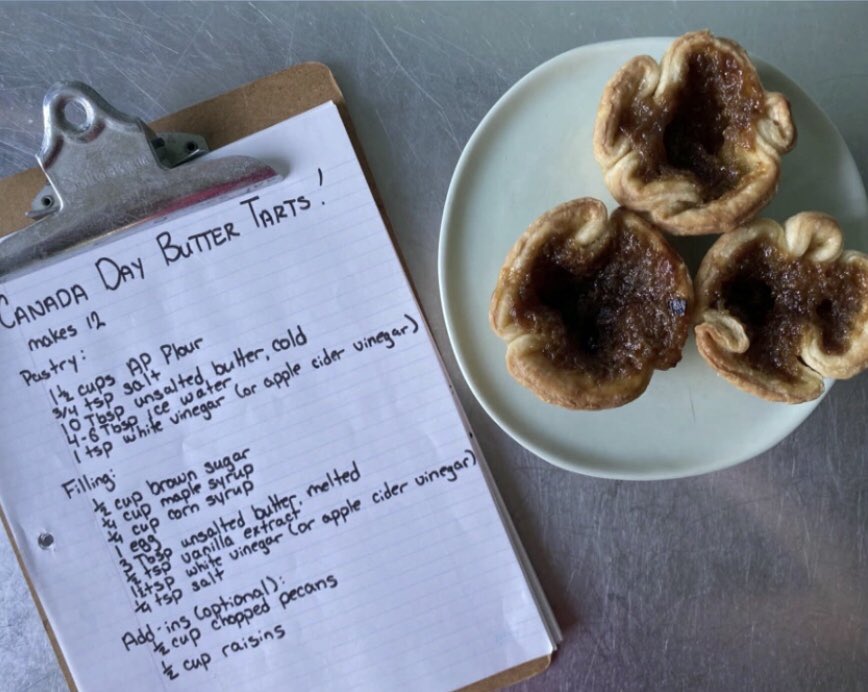 CANADA DAY BUTTER TARTS!
makes 12
Pastry:
1 ½ cups AP Flour
3/4 tsp salt
10 Tbsp unsalted butter, cold
4-6 Tbsp ice water
1 tsp white vinegar (or apple cider vinegar)
Filling:
½ cup brown sugar
¼ cup maple syrup
¼ cup corn syrup
1 egg
3 Tbsp unsalted butter, melted
½ tsp vanilla extract
1½ tsp white vinegar (or apple cider vinegar)
¼ tsp salt
Add-ins (optional):
½ cup chopped pecans
½ cup raisins